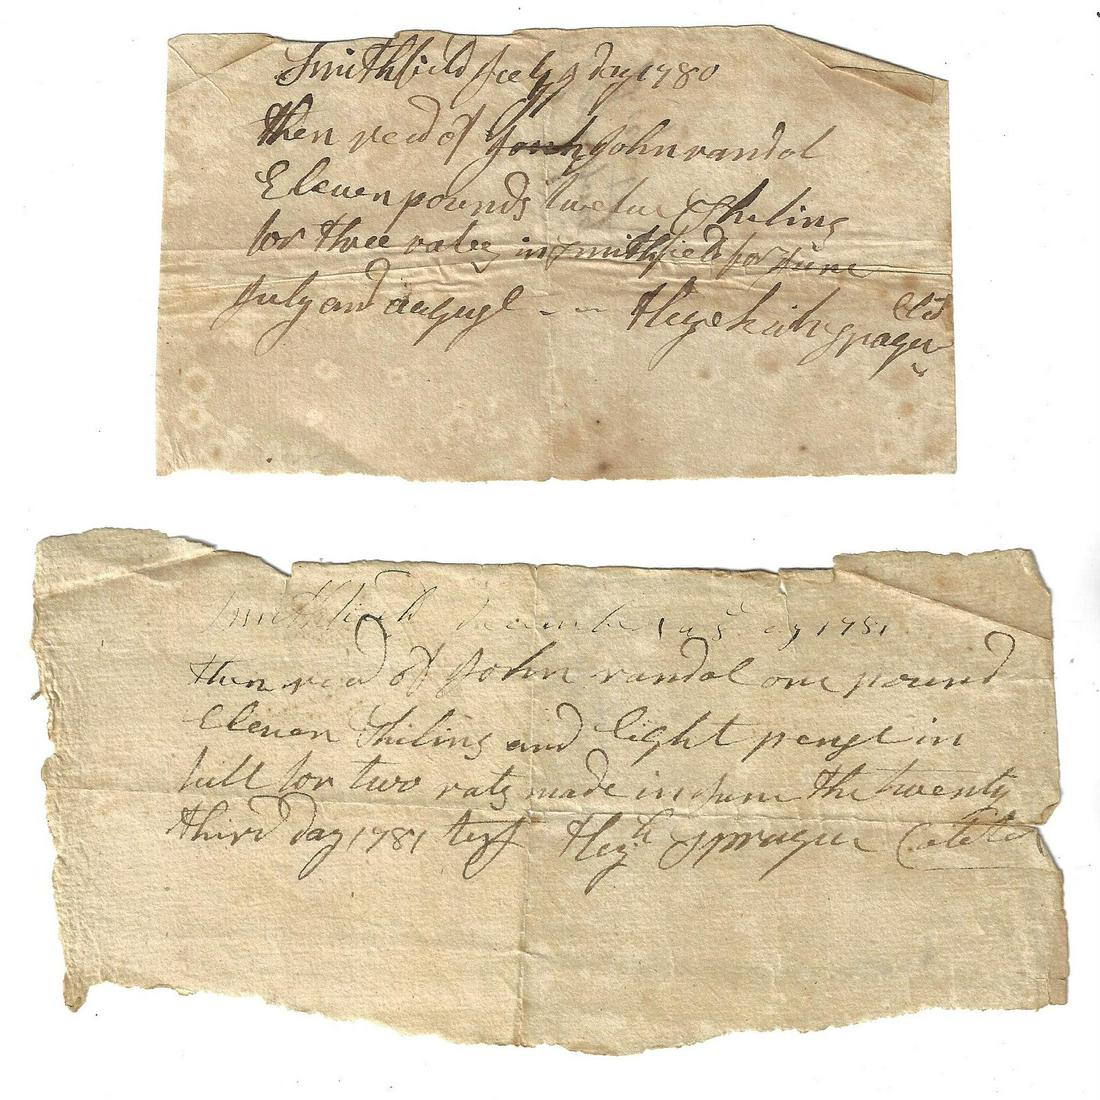 Smithfield day 1780
then recd of John randol
Eleven pounds twelve Shiling
for three rates in smithfield for June
July and august - - Hezekiah Sprague
Smithfield December 1781
then recd of John randol one pound
Eleven Shiling and Eight penge in
bill for two rats made in June the twenty
third day 1781 Hezh Sprague